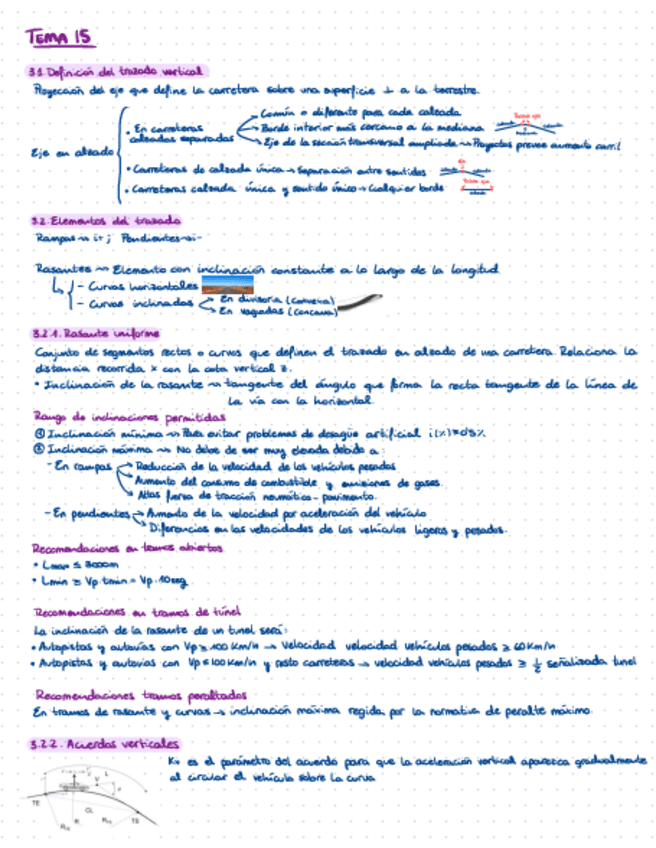 TEMA 15
3.1. Definición del trazado vertical
Proyección del eje que define la carretera sobre una superficie ⊥ a la terrestre.
Común o diferente para cada calzada
• En carreteras calzadas separadas
Borde interior más cercano a la mediana
Eje de la sección transversal ampliada ⇝ Proyectos prevee aumento carril
Eje en alzado
• Carreteras de calzada única → Separación entre sentidos
• Carreteras calzada única y sentido único → Cualquier borde
3.2. Elementos del trazado
Rampas ⇝ i+ ; Pendientes ⇝ i-
Rasantes ⇝ Elemento con inclinación constante a lo largo de la longitud
- Curvas horizontales
- Curvas inclinadas
En divisoria (convexa)
En vaguadas (concava)
3.2.1. Rasante uniforme
Conjunto de segmentos rectos o curvos que definen el trazado en alzado de una carretera. Relaciona la
distancia recorrida x con la cota vertical z.
• Inclinación de la rasante ⇝ tangente del ángulo que forma la recta tangente de la línea de
la vía con la horizontal.
Rango de inclinaciones permitidas
① Inclinación mínima ⇝ Para evitar problemas de desagüe artificial i(%)≥0'5%
② Inclinación máxima ⇝ No debe de ser muy elevada debido a:
- En rampas
Reducción de la velocidad de los vehículos pesados
Aumento del consumo de combustible y emisiones de gases.
Altas fuerza de tracción neumático - pavimento.
- En pendientes
Aumento de la velocidad por aceleración del vehículo
Diferencias en las velocidades de los vehículos ligeros y pesados.
Recomendaciones en tramos abiertos
• Lmax ≤ 3000m
• Lmin ≥ Vp·tmin = Vp·10seg
Recomendaciones en tramos de túnel
La inclinación de la rasante de un tunel será:
• Autopistas y autovías con Vp ≥ 100 Km/h → Velocidad velocidad vehículos pesados ≥ 60 Km/h
• Autopistas y autovías con Vp ≤ 100 Km/h y resto carreteras → velocidad vehículos pesados ≥ 1/2 señalizada tunel
Recomendaciones tramos peraltados
En tramos de rasante y curvas → inclinación máxima regida por la normativa de peralte máximo.
3.2.2. Acuerdos verticales
Kv es el parámetro del acuerdo para que la aceleración vertical aparezca gradualmente
al circular el vehículo sobre la curva
V
L
TE
CL
R
TS